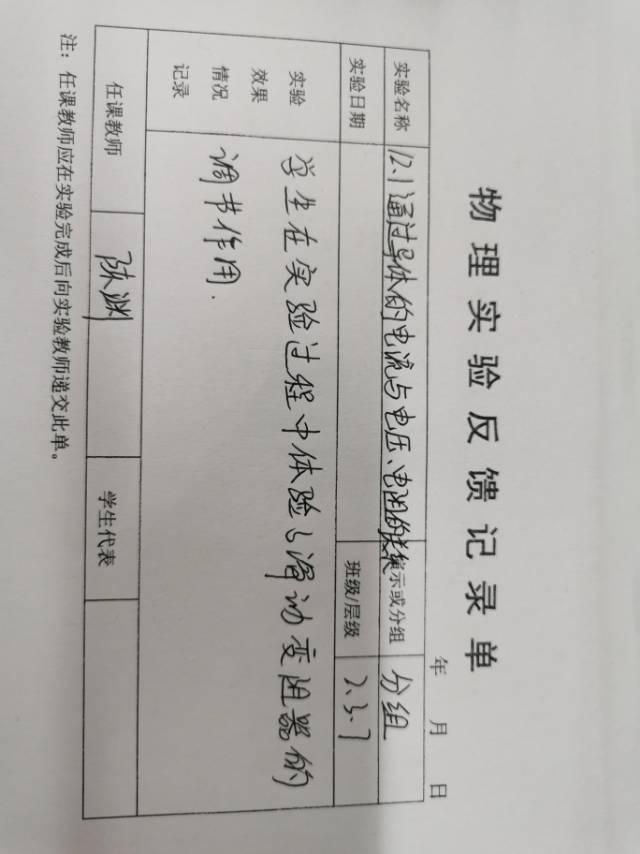 物理实验反馈记录单
年 月 日
实验名称 12.1通过导体的电流与电压、电阻的关系 演示或分组 分组
实验日期 班级/层级 2.3.7
实验
效果
情况
记录
学生在实验过程中体验了滑动变阻器的
调节作用.
任课教师 陈渊 学生代表
注：任课教师应在实验完成后向实验教师递交此单。